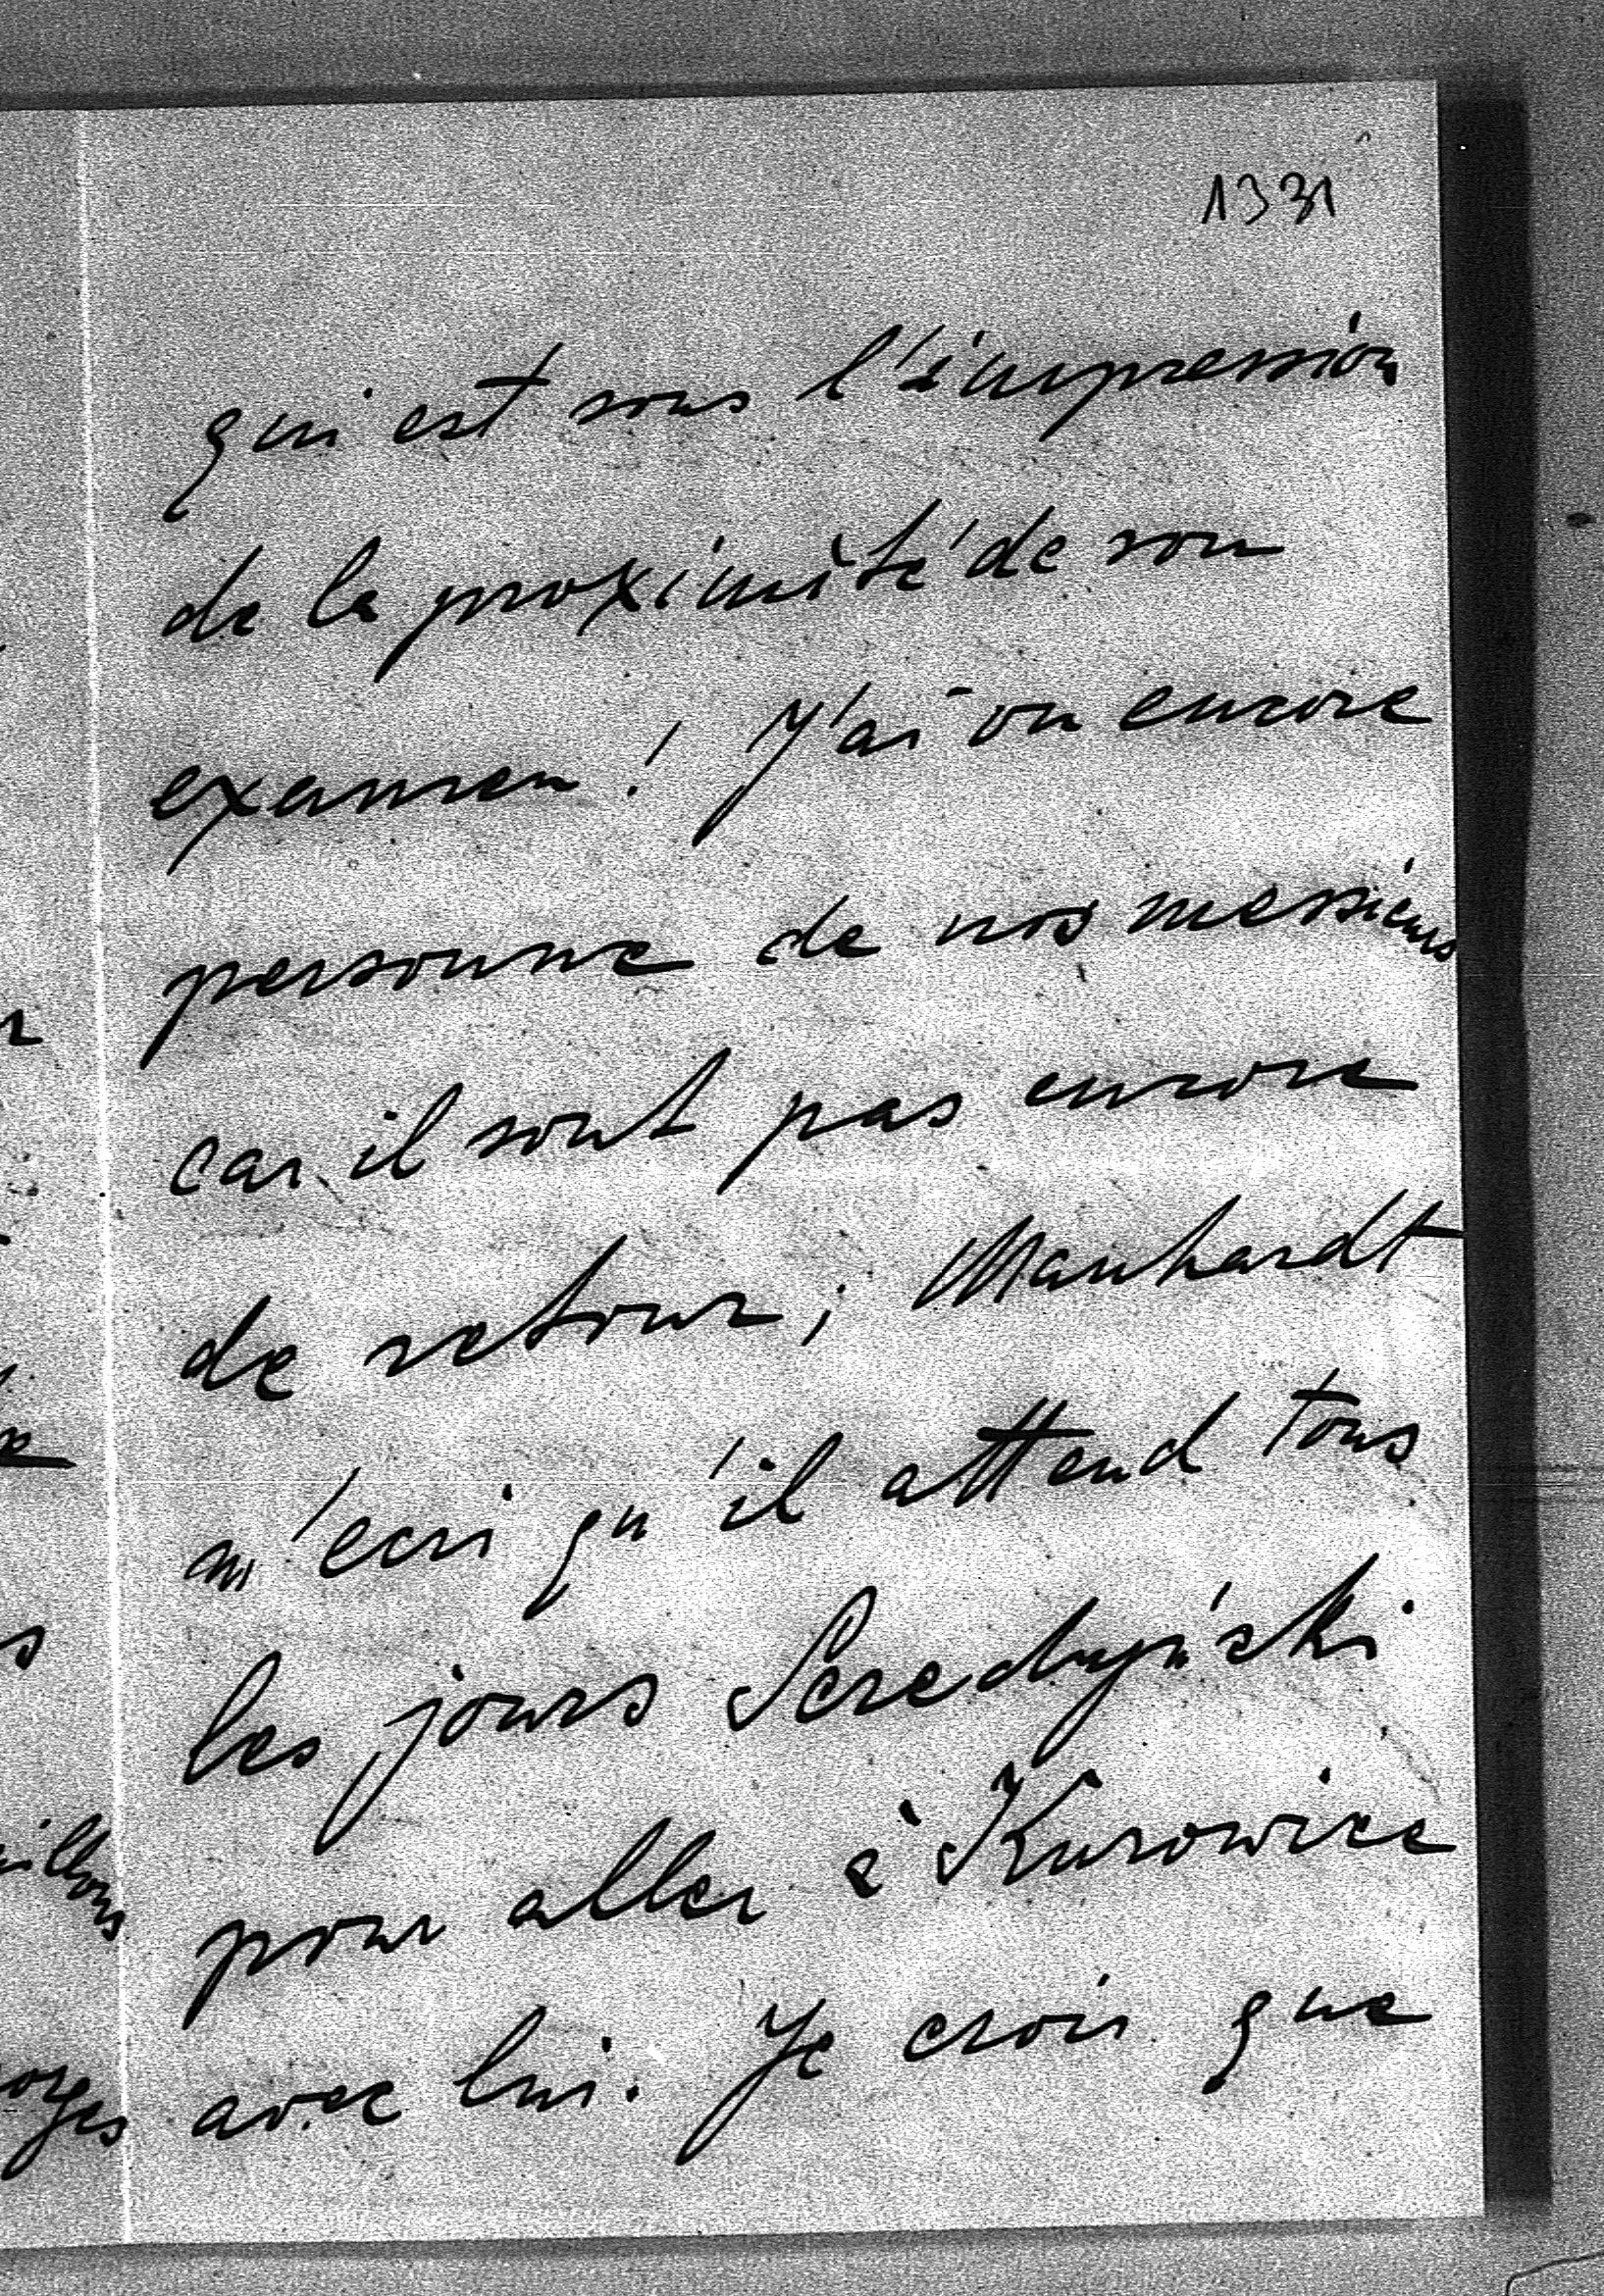 1331
qui est sous l'impression
de la proximité de son
examen! J'ai vu encore
personne de nos messieurs
car il sont pas encore
de retour; Manhardt
m'ecri qu'il attend tous
les jours Seredyński
pour aller à Kurowice
avec lui. Je crois que